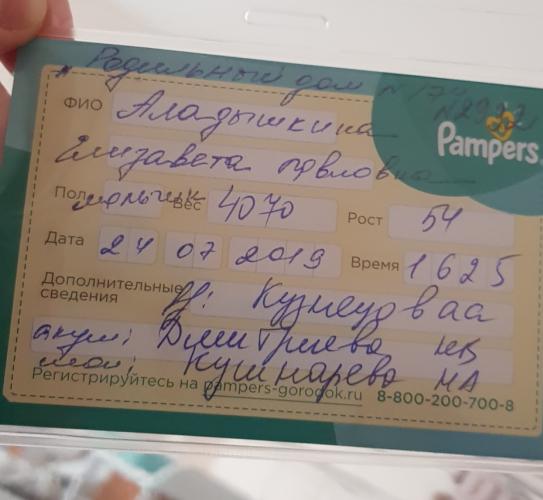 Родильный дом N 17
N 2922
ФИО Аладышкина
Pampers
Елизавета Павловна
Пол мальчик Вес 4070 Рост 54
Дата 24 07 2019 Время 1625
Дополнительные сведения Кузнецова
акуш: Дмитриева НВ
Кушнарева НА
Регистрируйтесь на pampers-gorodok.ru 8-800-200-700-8